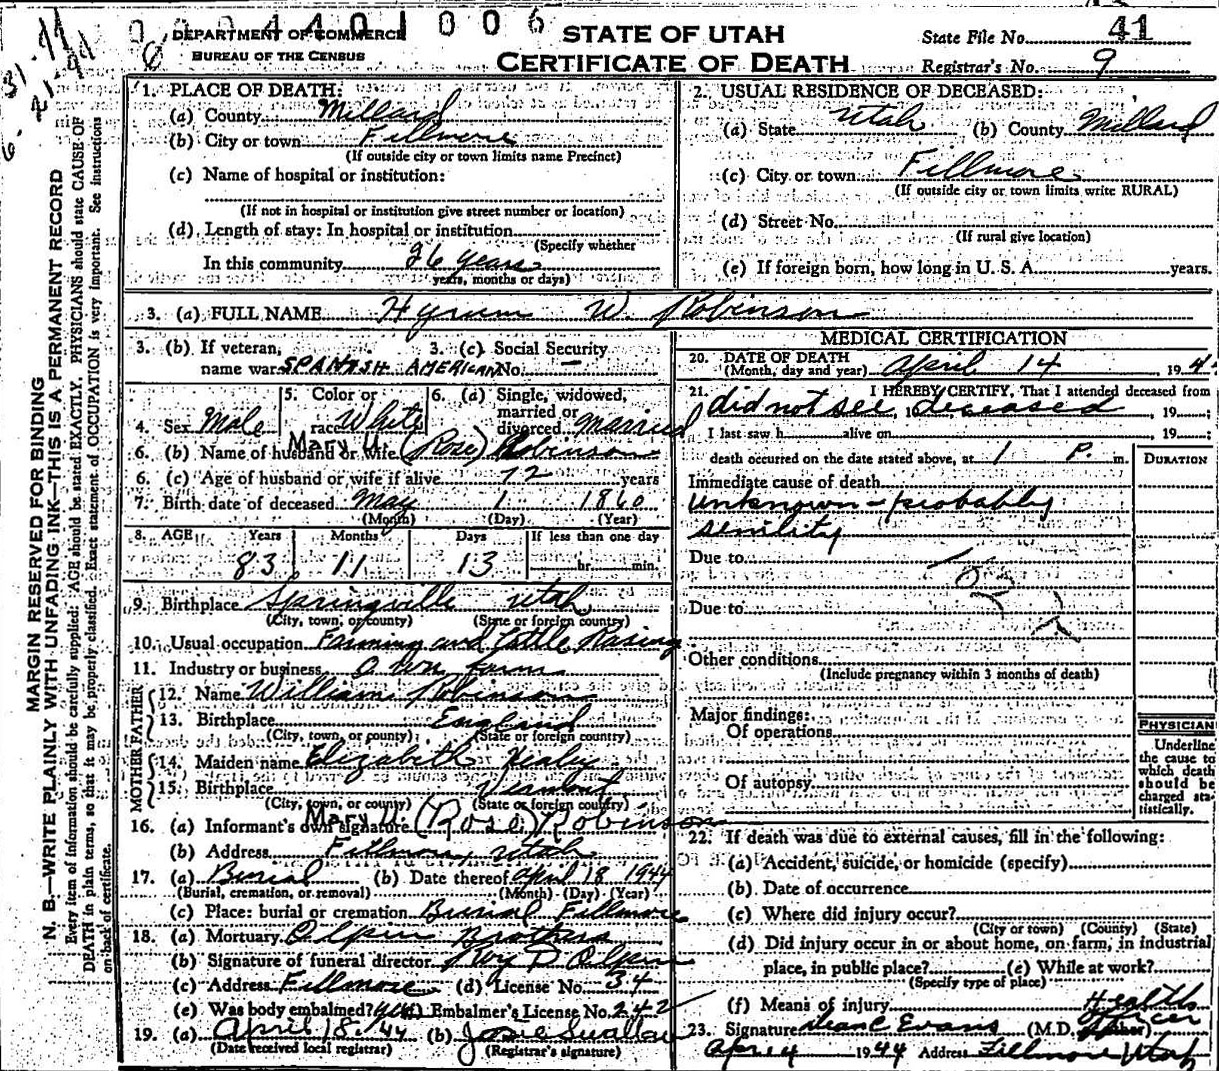 0004401006
DEPARTMENT OF COMMERCE
BUREAU OF THE CENSUS
STATE OF UTAH
CERTIFICATE OF DEATH
State File No. 41
Registrar's No. 9
MARGIN RESERVED FOR BINDING
N. B.—WRITE PLAINLY WITH UNFADING INK—THIS IS A PERMANENT RECORD
Every item of information should be carefully supplied. AGE should be stated EXACTLY. PHYSICIANS should state CAUSE OF
DEATH in plain terms, so that it may be properly classified. Exact statement of OCCUPATION is very important. See instructions
on back of certificate.
1. PLACE OF DEATH:
(a) County Millard
(b) City or town Fillmore
(If outside city or town limits name Precinct)
(c) Name of hospital or institution:
(If not in hospital or institution give street number or location)
(d) Length of stay: In hospital or institution
(Specify whether
In this community 26 years
years, months or days)
2. USUAL RESIDENCE OF DECEASED:
(a) State Utah (b) County Millard
(c) City or town Fillmore
(If outside city or town limits write RURAL)
(d) Street No.
(If rural give location)
(e) If foreign born, how long in U. S. A. years.
3. (a) FULL NAME Hyrum W. Robinson
3. (b) If veteran, 3. (c) Social Security
name war SPANISH AMERICAN No. —
4. Sex Male
5. Color or
race White
6. (a) Single, widowed,
married or
divorced Married
6. (b) Name of husband or wife Mary U. (Rose) Robinson
6. (c) Age of husband or wife if alive 72 years
7. Birth date of deceased May 1 1860
(Month) (Day) (Year)
8. AGE Years Months Days If less than one day
83 11 13 hr. min.
9. Birthplace Springville Utah
(City, town, or county) (State or foreign country)
10. Usual occupation Farming and Cattle Raising
11. Industry or business Own farm
FATHER
12. Name William Robinson
13. Birthplace England
(City, town, or county) (State or foreign country)
MOTHER
14. Maiden name Elizabeth Healey
15. Birthplace Vermont
(City, town, or county) (State or foreign country)
16. (a) Informant's own signature Mary U. (Rose) Robinson
(b) Address Fillmore, Utah
17. (a) Burial (b) Date thereof April 18 1944
(Burial, cremation, or removal) (Month) (Day) (Year)
(c) Place: burial or cremation Burial Fillmore
18. (a) Mortuary Olpin Brothers
(b) Signature of funeral director Roy D Olpin
(c) Address Fillmore (d) License No. 34
(e) Was body embalmed? yes (f) Embalmer's License No. 242
19. (a) April 18. '44 (b) Josie Swallow
(Date received local registrar) (Registrar's signature)
MEDICAL CERTIFICATION
20. DATE OF DEATH
(Month, day and year) April 14 194
21. I HEREBY CERTIFY, That I attended deceased from
did not see deceased, 19
I last saw h alive on , 19
death occurred on the date stated above, at 1 P. m.
DURATION
Immediate cause of death
unknown - probably
senility
Due to
Due to
Other conditions
(Include pregnancy within 3 months of death)
Major findings:
Of operations
Of autopsy
PHYSICIAN
Underline
the cause to
which death
should be
charged sta-
tistically.
22. If death was due to external causes, fill in the following:
(a) Accident, suicide, or homicide (specify)
(b) Date of occurrence
(c) Where did injury occur?
(City or town) (County) (State)
(d) Did injury occur in or about home, on farm, in industrial
place, in public place? (e) While at work?
(Specify type of place)
(f) Means of injury
23. Signature Dean C Evans (M.D. or other) Health Officer
Apr 14 1944 Address Fillmore Utah